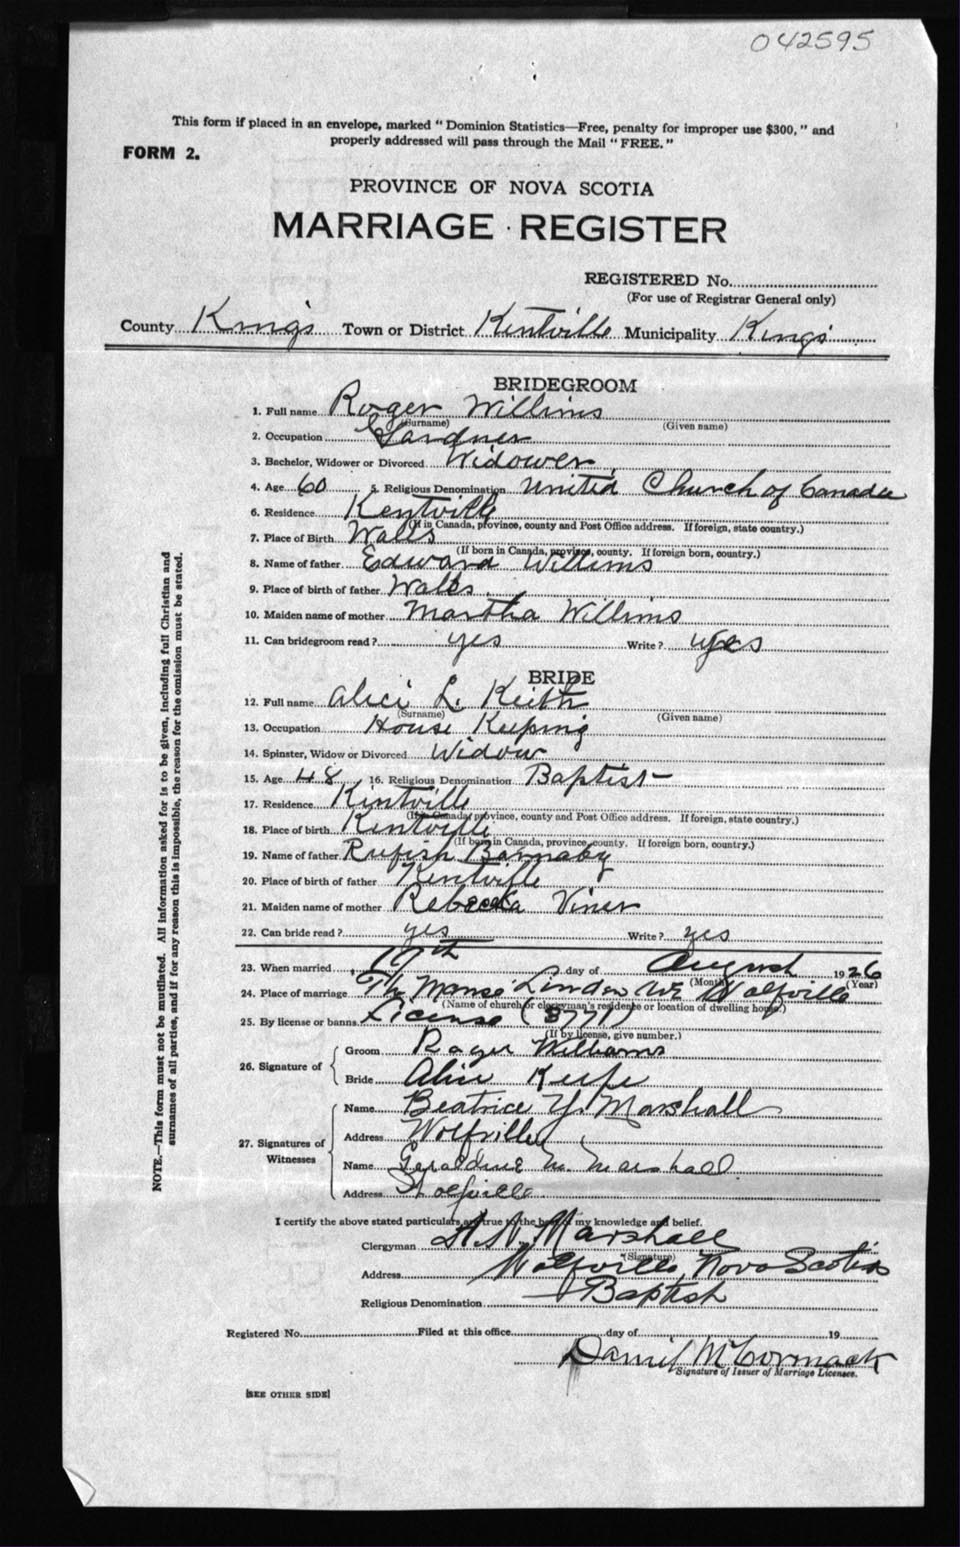 042595
This form if placed in an envelope, marked "Dominion Statistics—Free, penalty for improper use $300," and
properly addressed will pass through the Mail "FREE."
FORM 2.
PROVINCE OF NOVA SCOTIA
MARRIAGE REGISTER
REGISTERED No.
(For use of Registrar General only)
County Kings Town or District Kentville Municipality Kings
BRIDEGROOM
1. Full name Roger Willims
(Surname) (Given name)
2. Occupation Gardner
3. Bachelor, Widower or Divorced Widower
4. Age 60 5. Religious Denomination United Church of Canada
6. Residence Kentville
(If in Canada, province, county and Post Office address. If foreign, state country.)
7. Place of Birth Walls
(If born in Canada, province, county. If foreign born, country.)
8. Name of father Edward Willims
9. Place of birth of father Wales
10. Maiden name of mother Martha Willims
11. Can bridegroom read? yes Write? yes
BRIDE
12. Full name Alici L. Keith
(Surname) (Given name)
13. Occupation House Keeping
14. Spinster, Widow or Divorced Widow
15. Age 48 16. Religious Denomination Baptist
17. Residence Kintville
(If in Canada, province, county and Post Office address. If foreign, state country.)
18. Place of birth Kentville
(If born in Canada, province, county. If foreign born, country.)
19. Name of father Rufish Barnaby
20. Place of birth of father Kentville
21. Maiden name of mother Rebecka Viner
22. Can bride read? yes Write? yes
23. When married 17th day of August 1926
(Month) (Year)
24. Place of marriage The Manse Linden Ave Wolfville
(Name of church or clergyman's residence or location of dwelling house.)
25. By license or banns License (3777)
(If by license, give number.)
26. Signature of
Groom Roger Williams
Bride Alice Keefe
27. Signatures of Witnesses
Name Beatrice Y. Marshall
Address Wolfville
Name Geraldine M. Marshall
Address Wolfville
I certify the above stated particulars are true to the best of my knowledge and belief.
Clergyman Marshall
(Signature)
Address Wolfville Nova Scotia
Religious Denomination Baptist
Registered No. Filed at this office day of 19
Daniel McCormack
Signature of Issuer of Marriage Licenses.
[SEE OTHER SIDE]
NOTE.—This form must not be mutilated. All information asked for is to be given, including full Christian and
surnames of all parties, and if for any reason this is impossible, the reason for the omission must be stated.